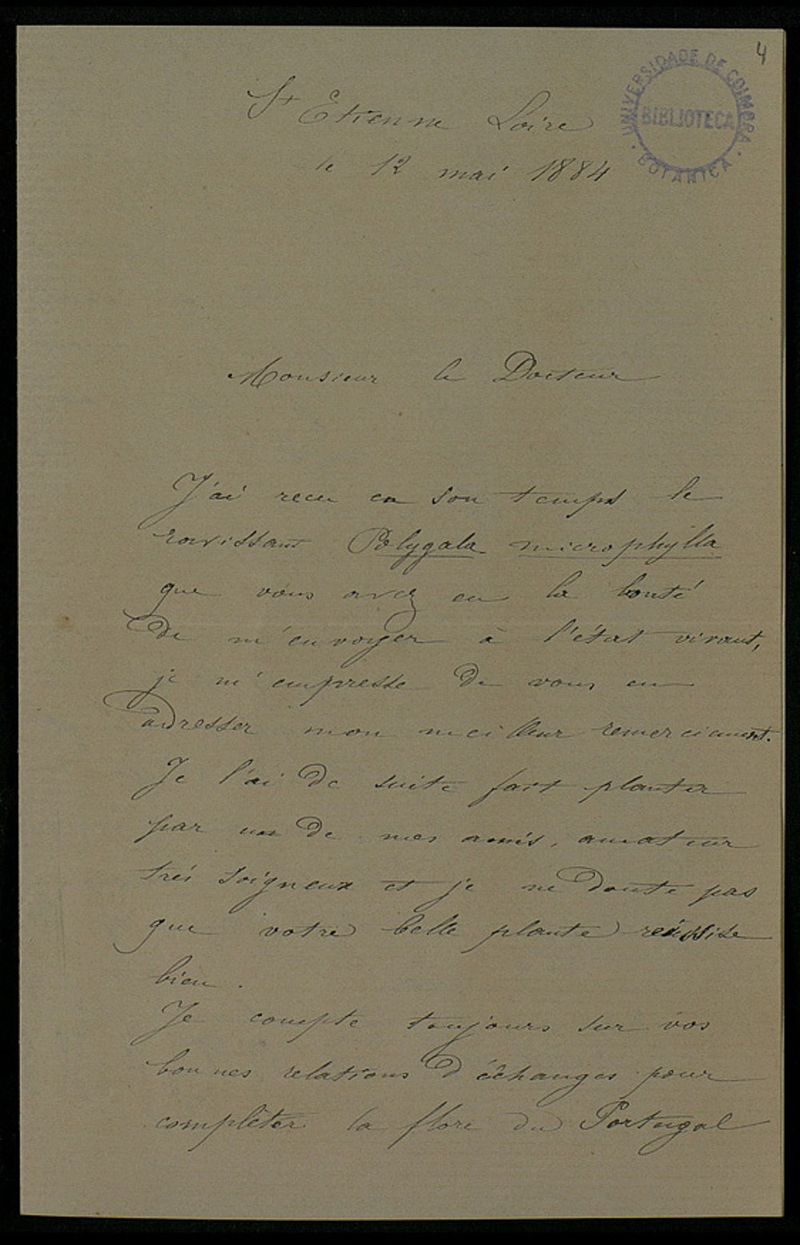 4
UNIVERSIDADE DE COIMBRA
BIBLIOTECA
BOTANICA
St Etienne Loire
le 12 mai 1884
Monsieur le Docteur
J'ai reçu en son temps le
ravissant Polygala microphylla
que vous avez eu la bonté
de m'envoyer à l'état vivant,
je m'empresse de vous en
adresser mon meilleur remerciement.
Je l'ai de suite fait planter
par un de mes amis, amateur
très soigneux et je ne doute pas
que votre belle plante réussise
bien.
Je compte toujours sur vos
bonnes relations d'échanges pour
compléter la flore du Portugal